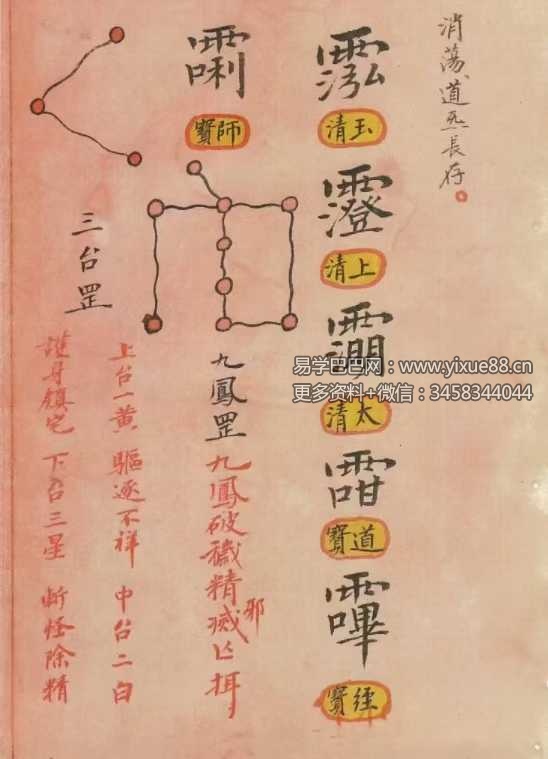 消蕩道炁長存。
玉清
上清
太清
道寶
經寶
師寶
九鳳罡 九鳳破穢精邪滅亡
三台罡
上台一黃 驅逐不祥 中台二白
護身鎮宅 下台三星 斬怪除精
易学巴巴网：www.yixue88.cn
更多资料+微信：3458344044